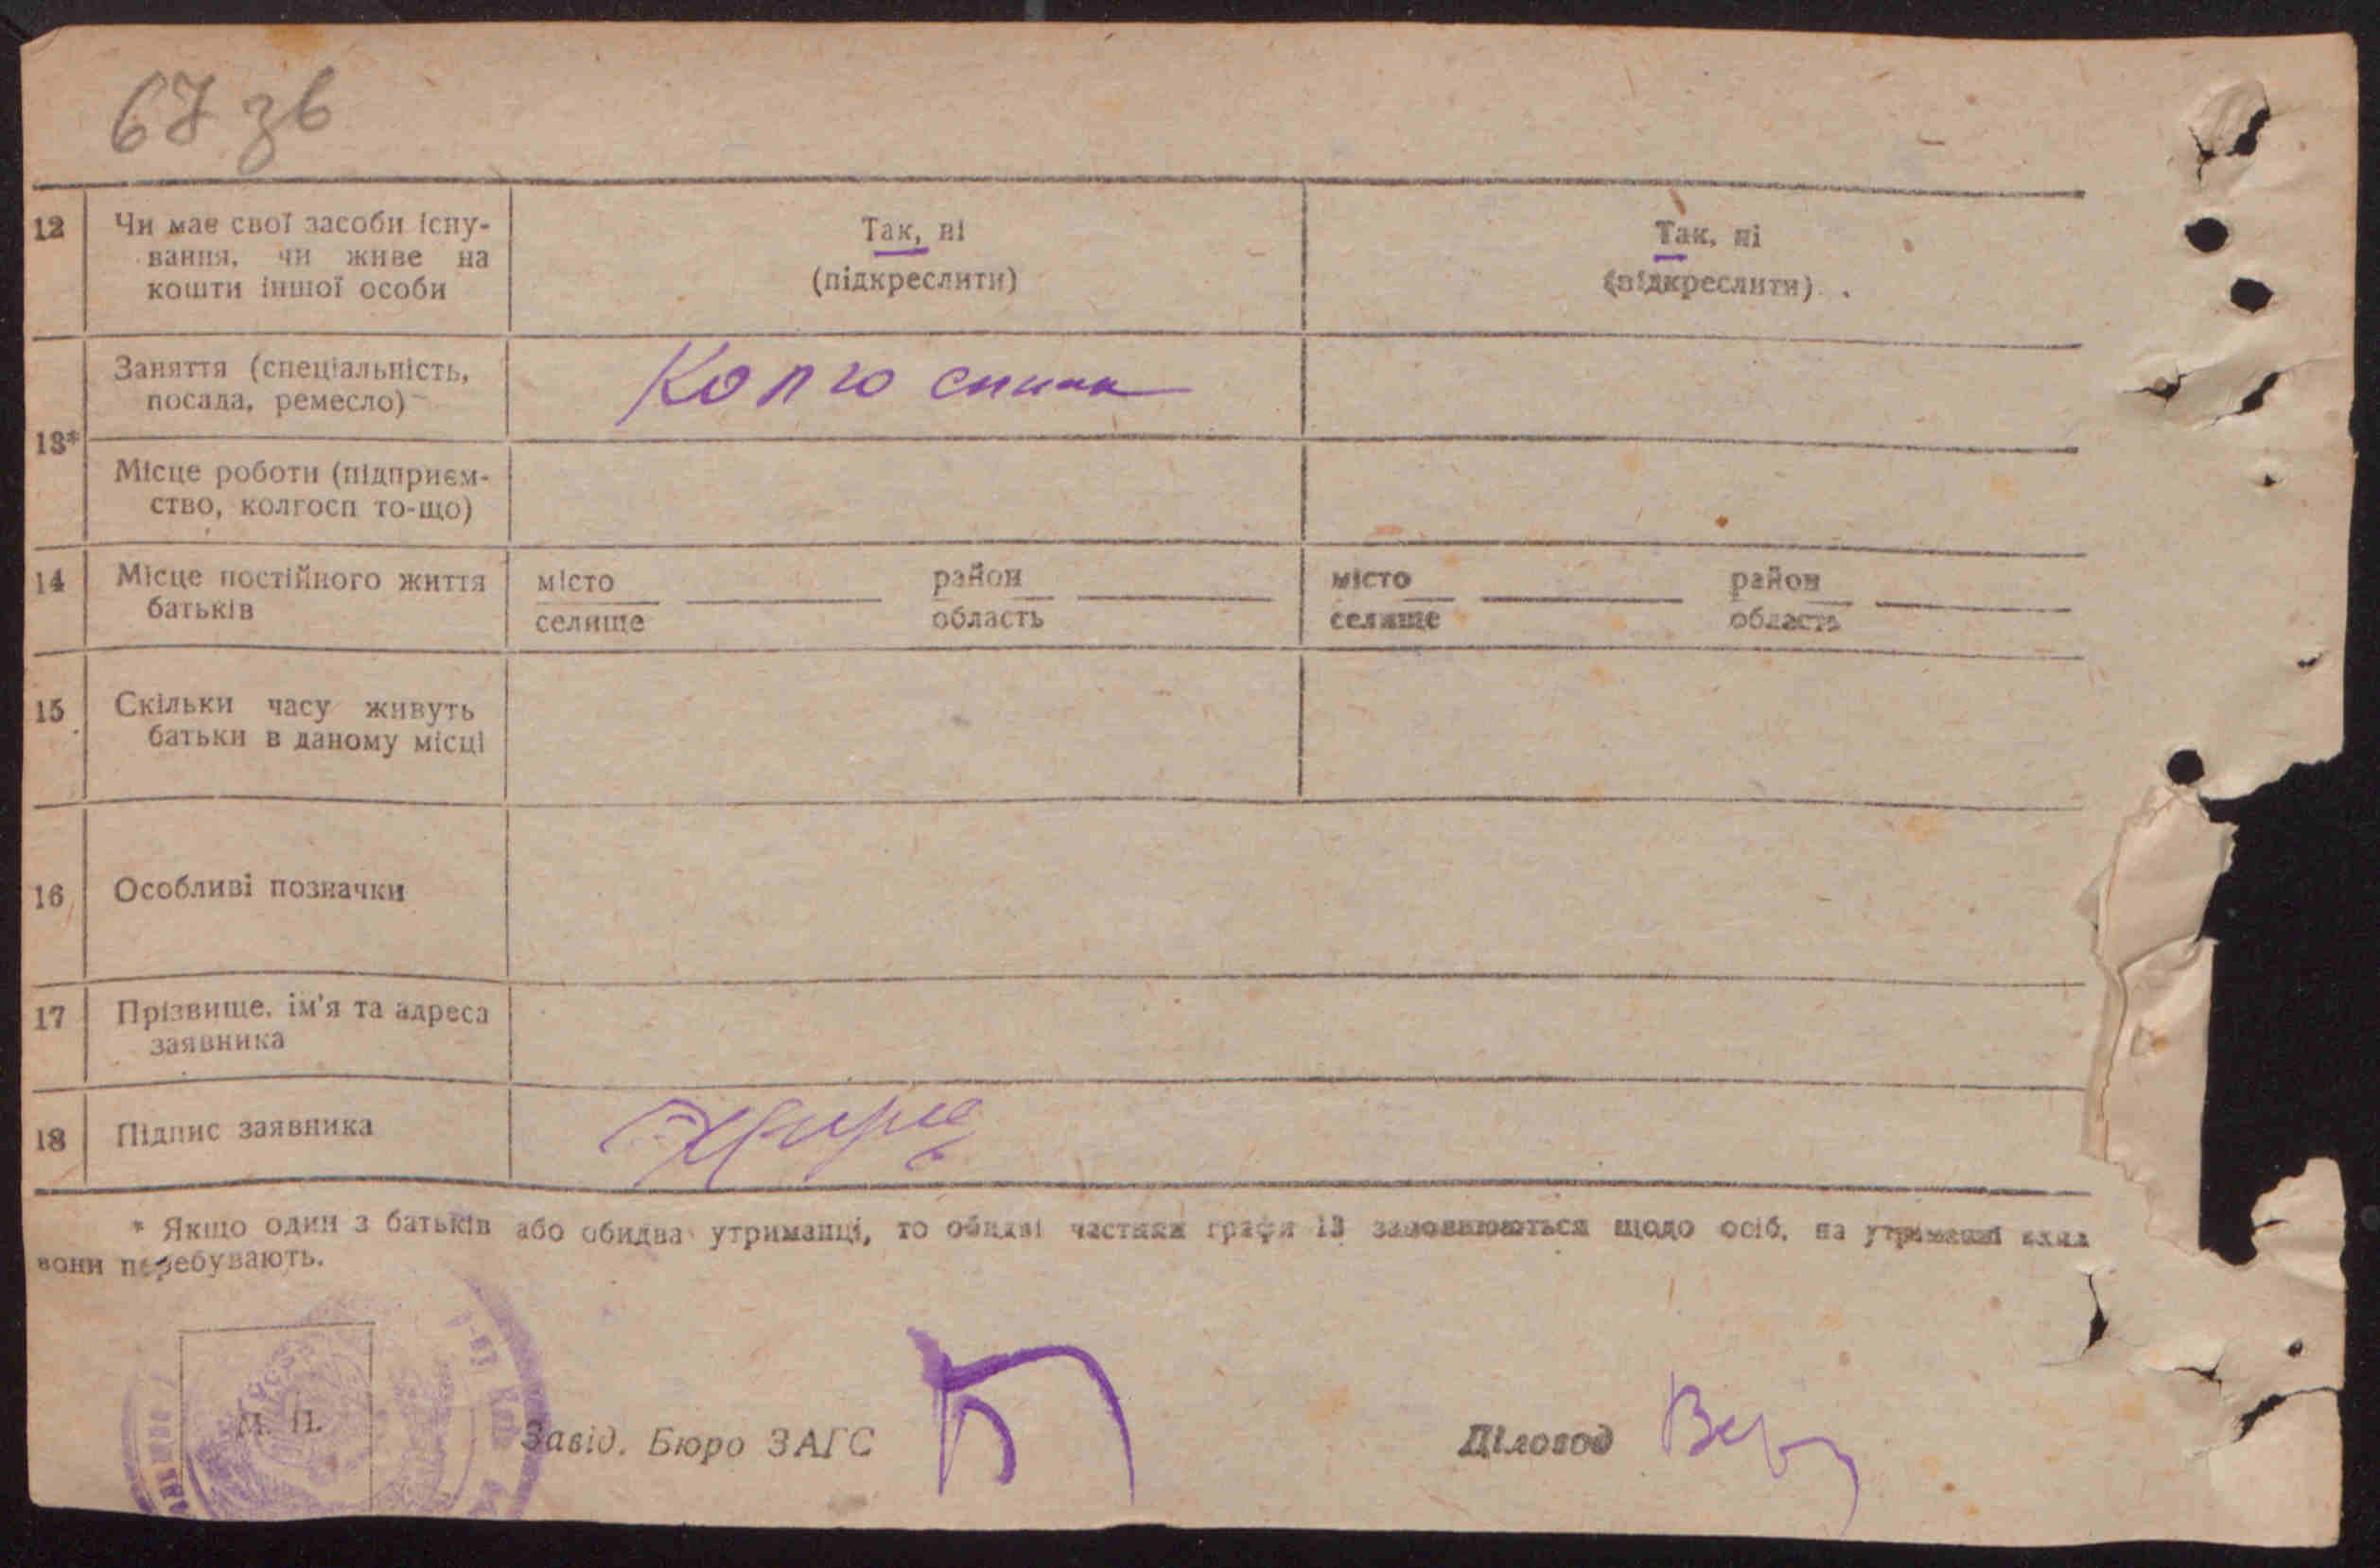 67 зв
12 Чи має свої засоби існу- Так, ні Так, ні
вання, чи живе на (підкреслити) (підкреслити)
кошти іншої особи
13* Заняття (спеціальність, Колгоспник
посада, ремесло)
Місце роботи (підприєм-
ство, колгосп то-що)
14 Місце постійного життя місто район місто район
батьків селище область селище область
15 Скільки часу живуть
батьки в даному місці
16 Особливі позначки
17 Прізвище, ім'я та адреса
заявника
18 Підпис заявника
* Якщо один з батьків або обидва утриманці, то обидві частини графи 13 заповнюються щодо осіб, на утриманні яких
вони перебувають.
М. П.
Завід. Бюро ЗАГС Діловод